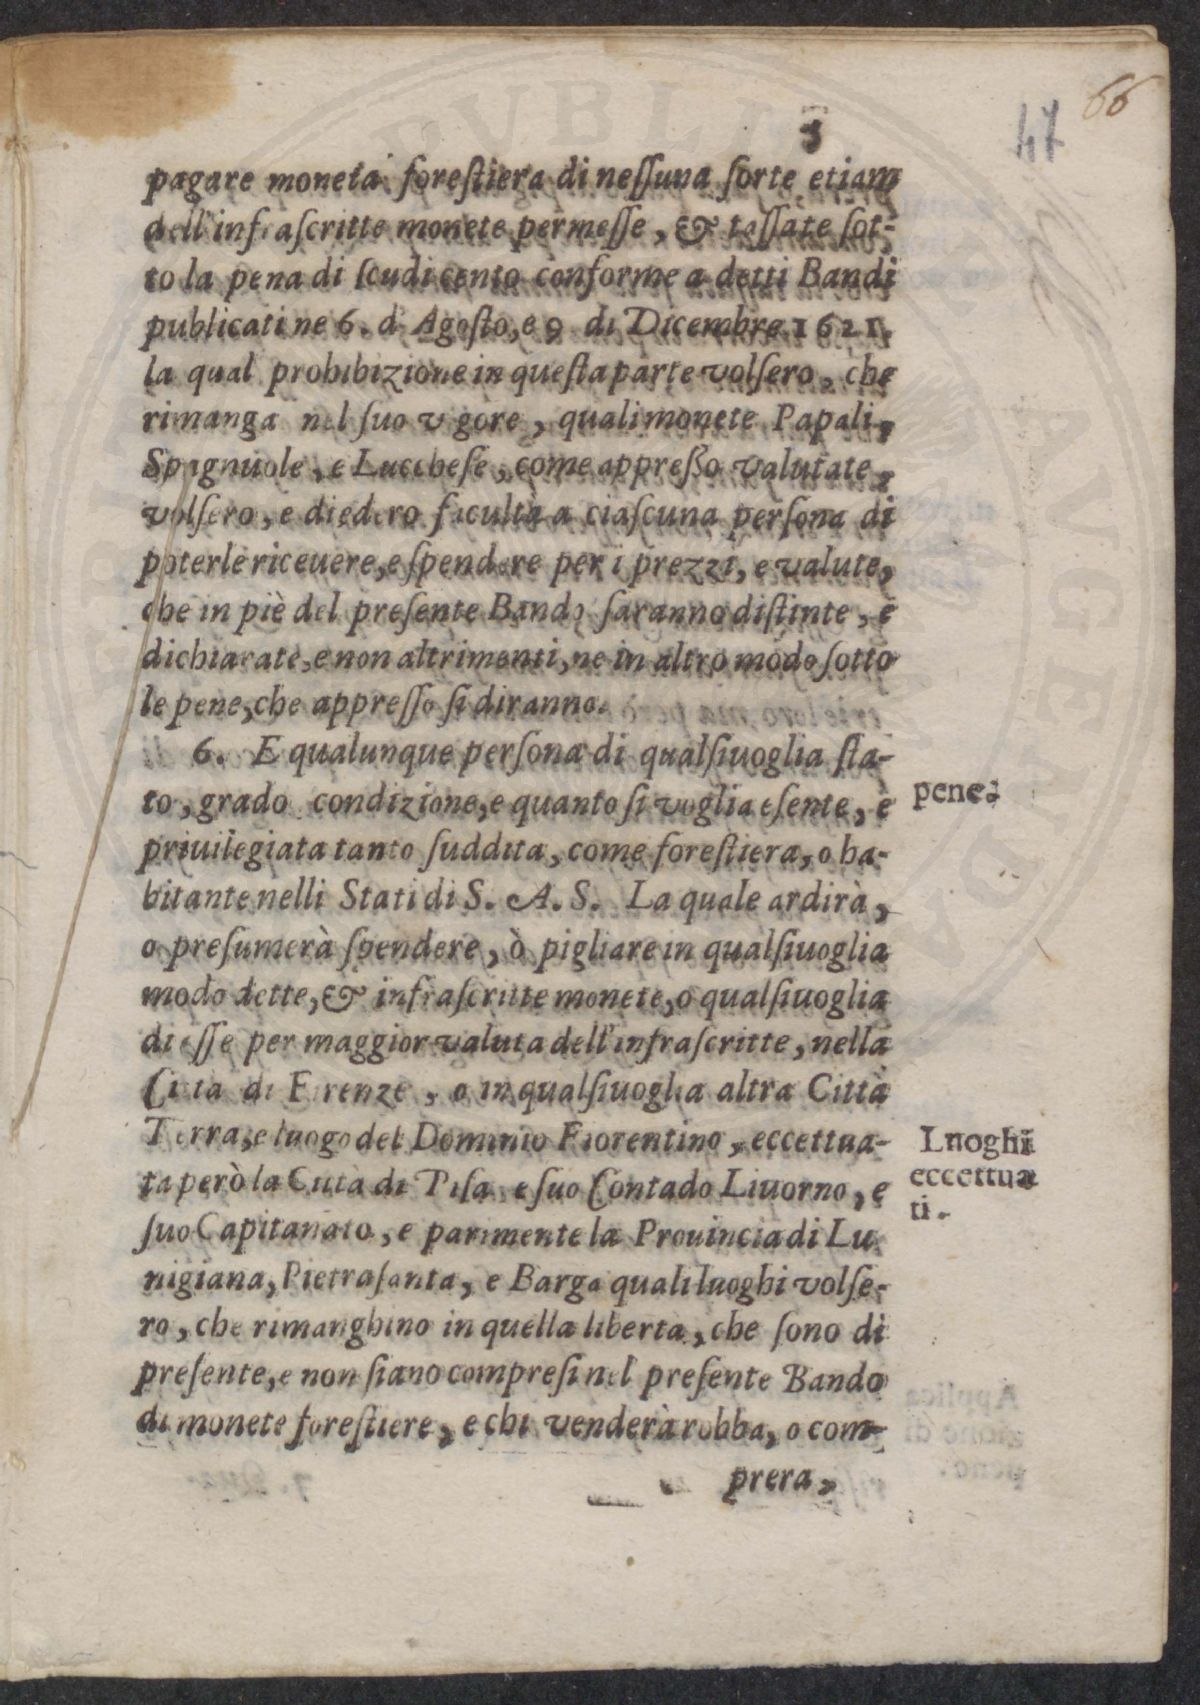 66
47
3
pagare moneta forestiera di nessuna sorte etiam
dell'infrascritte monete permesse, & tassate sot-
to la pena di scudi cento conforme a detti Bandi
publicati ne 6. d' Agosto, e 9 di Dicembre 1621.
la qual prohibizione in questa parte volsero, che
rimanga nel suo vigore, quali monete Papali,
Spagnuole, e Lucchese, come appresso valutate,
volsero, e diedero facultà a ciascuna persona di
poterle riceuere, e spendere per i prezzi, e valute,
che in piè del presente Bando saranno distinte, e
dichiarate, e non altrimenti, ne in altro modo sotto
le pene, che appresso si diranno.
6. E qualunque persona di qualsiuoglia sta-
to, grado condizione, e quanto si voglia esente, e
priuilegiata tanto suddita, come forestiera, o ha-
bitante nelli Stati di S. A. S. La quale ardirà,
o presumerà spendere, ò pigliare in qualsiuoglia
modo dette, & infrascritte monete, o qualsiuoglia
di esse per maggior valuta dell'infrascritte, nella
Citta di Firenze, o in qualsiuoglia altra Città
Terra, e luogo del Dominio Fiorentino, eccettua-
ta però la Città di Pisa e suo Contado Liuorno, e
suo Capitanato, e parimente la Prouincia di Lu
nigiana, Pietrasanta, e Barga quali luoghi volse-
ro, che rimanghino in quella liberta, che sono di
presente, e non siano compresi nel presente Bando
di monete forestiere, e chi venderà robba, o com-
prera,
pene.
Luoghi
eccettua
ti.